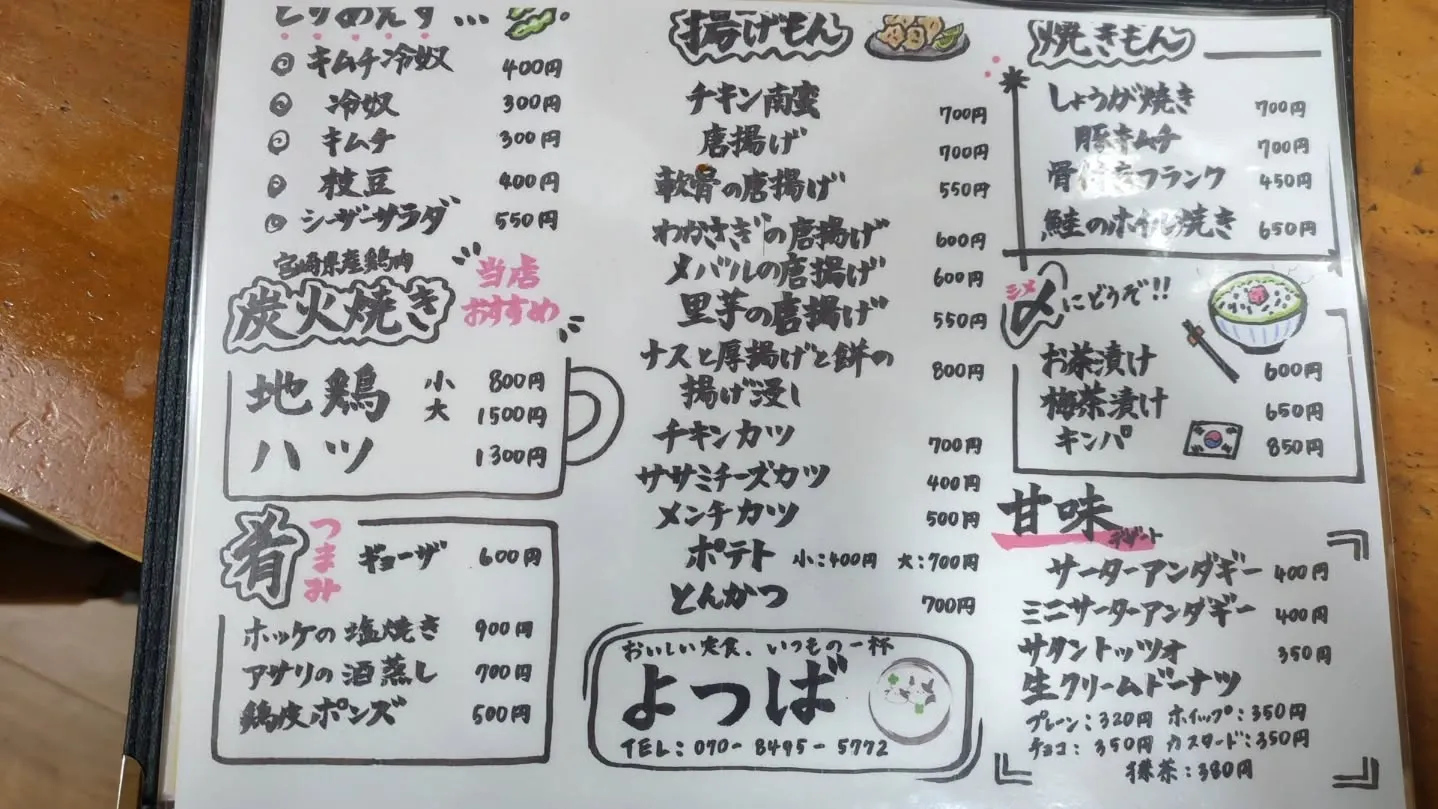 とりあえず...
◎ キムチ冷奴 400円
◎ 冷奴 300円
◎ キムチ 300円
◎ 枝豆 400円
◎ シーザーサラダ 550円
宮崎県産鶏肉
炭火焼き
当店
おすすめ
地鶏 小 800円
大 1500円
ハツ 1300円
肴
つまみ
ギョーザ 600円
ホッケの塩焼き 900円
アサリの酒蒸し 700円
鶏皮ポンズ 500円
揚げもん
チキン南蛮 700円
唐揚げ 700円
軟骨の唐揚げ 550円
わかさぎの唐揚げ 600円
メバルの唐揚げ 600円
里芋の唐揚げ 550円
ナスと厚揚げと餅の
揚げ浸し 800円
チキンカツ 700円
ササミチーズカツ 400円
メンチカツ 500円
ポテト 小:400円 大:700円
とんかつ 700円
おいしい定食、いつもの一杯
よつば
TEL:070-8495-5772
焼きもん
しょうが焼き 700円
豚キムチ 700円
骨付きフランク 450円
鮭のホイル焼き 650円
シメ
〆にどうぞ!!
お茶漬け 600円
梅茶漬け 650円
キンパ 850円
甘味
デザート
サーターアンダギー 400円
ミニサーターアンダギー 400円
サタントッツォ 350円
生クリームドーナツ
プレーン:320円 ホイップ:350円
チョコ:350円 カスタード:350円
抹茶:380円